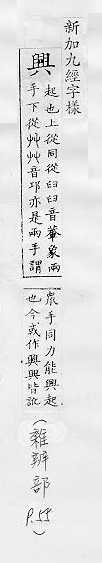 新加九經字樣
興
起也上從同從𦥑𦥑音匊象兩
手下從廾廾音邛亦是兩手謂
衆手同力能興起
也今或作興興皆訛
(雜辨部
P.55)